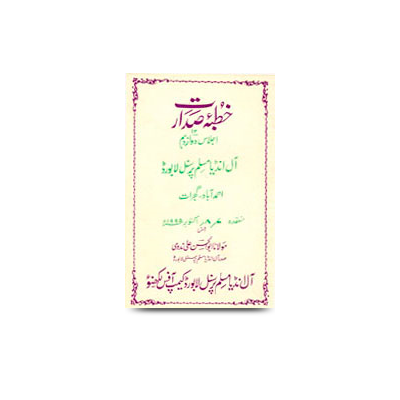 خطبۂ صدارت
اجلاس دوازدہم
آل انڈیا مسلم پرسنل لا بورڈ
احمد آباد، گجرات
منعقدہ ۷، ۸ اکتوبر ۱۹۹۵ء
مولانا ابوالحسن علی ندوی
صدر آل انڈیا مسلم پرسنل لا بورڈ
آل انڈیا مسلم پرسنل لا بورڈ کیمپ آفس لکھنؤ